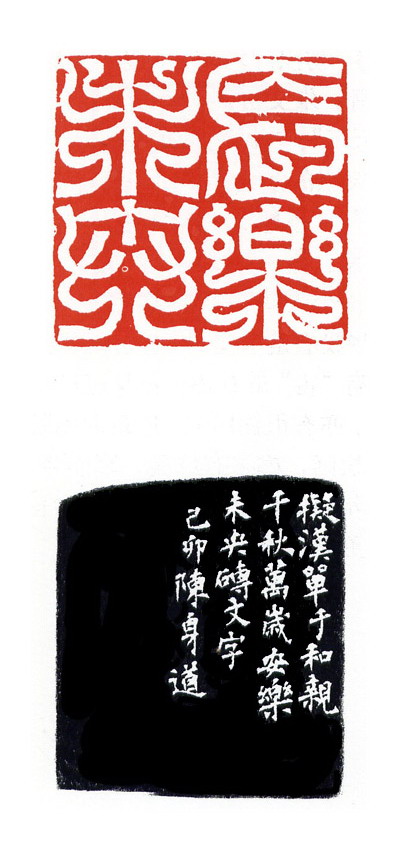 長樂
未央
擬漢單于和親
千秋萬歲安樂
未央磚文字
己卯陳身道